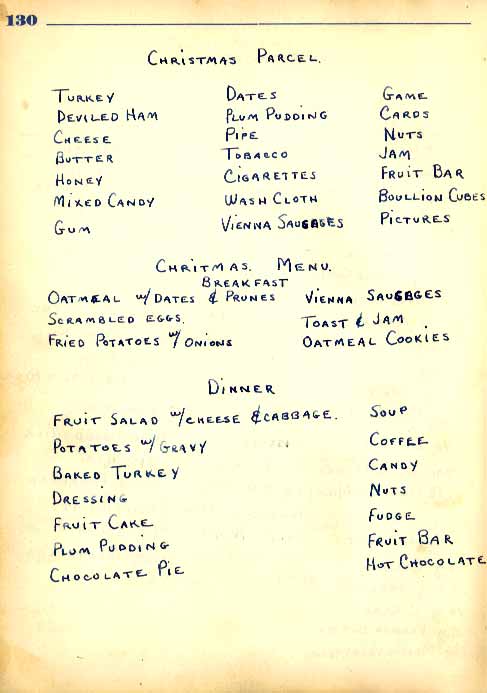 130
CHRISTMAS PARCEL.
TURKEY DATES GAME
DEVILED HAM PLUM PUDDING CARDS
CHEESE PIPE NUTS
BUTTER TOBACCO JAM
HONEY CIGARETTES FRUIT BAR
MIXED CANDY WASH CLOTH BOULLION CUBES
GUM VIENNA SAUSAGES PICTURES
CHRITMAS. MENU.
BREAKFAST
OATMEAL W/ DATES & PRUNES VIENNA SAUSAGES
SCRAMBLED EGGS. TOAST & JAM
FRIED POTATOES W/ ONIONS OATMEAL COOKIES
DINNER
FRUIT SALAD W/CHEESE & CABBAGE. SOUP
POTATOES W/ GRAVY COFFEE
BAKED TURKEY CANDY
DRESSING NUTS
FRUIT CAKE FUDGE
PLUM PUDDING FRUIT BAR
CHOCOLATE PIE HOT CHOCOLATE